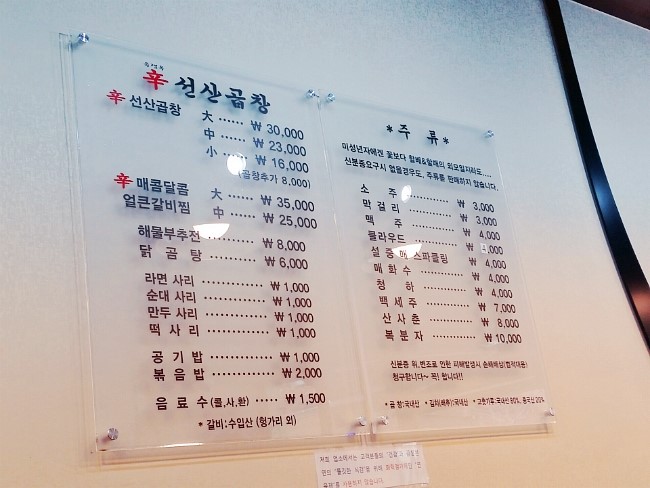 辛 선산곱창
辛 선산곱창 大 ...... ₩ 30,000
中 ...... ₩ 23,000
小 ...... ₩ 16,000
(곱창추가 8,000)
辛 매콤달콤 大 ...... ₩ 35,000
얼큰갈비찜 中 ...... ₩ 25,000
해물부추전 ............ ₩ 8,000
닭 곰 탕 ............... ₩ 6,000
라면 사리 ............... ₩ 1,000
순대 사리 ............... ₩ 1,000
만두 사리 ............... ₩ 1,000
떡 사리 ............... ₩ 1,000
공 기 밥 ............... ₩ 1,000
볶 음 밥 ............... ₩ 2,000
음 료 수 (콜,사,환) ...... ₩ 1,500
* 갈비:수입산 (헝가리 외)
* 주 류 *
미성년자에겐 꽃보다 할배&할매의 외모일지라도.....
신분증요구시 없을경우도, 주류를 판매하지 않습니다.
소 주 ............... ₩ 3,000
막 걸 리 ............... ₩ 3,000
맥 주 ............... ₩ 4,000
클라우드 ............... ₩ 4,000
설 중 매 스파클링 ₩ 4,000
매 화 수 ............... ₩ 4,000
청 하 ............... ₩ 4,000
백 세 주 ............... ₩ 7,000
산 사 춘 ............... ₩ 8,000
복 분 자 ............... ₩ 10,000
신분증 위,변조로 인한 피해발생시 손해배상(법적대응)
청구합니다~ 꼭! 합니다!!
* 곱 창:국내산 * 김치(배추):국내산 * 고춧가루:국내산 80%, 중국산 20%
저희 업소에서는 고객분들의
위해